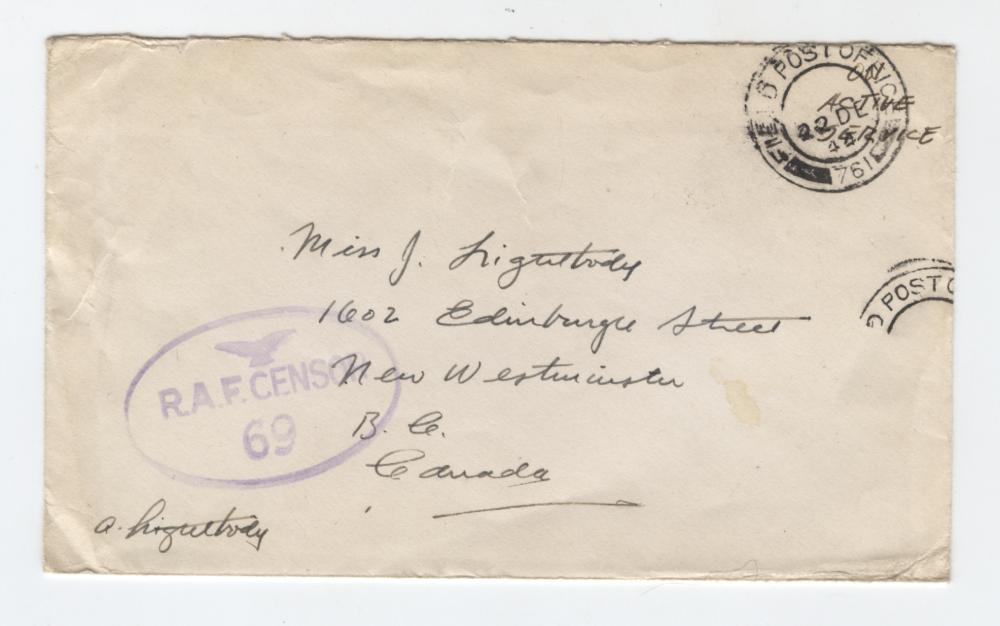 FIELD POST OFFICE
22 DE
44
761
ON
ACTIVE
SERVICE
D POST O
Miss J. Lightbody
1602 Edinburgh Street
New Westminster
B. C.
Canada
R.A.F. CENSOR
69
A. Lightbody